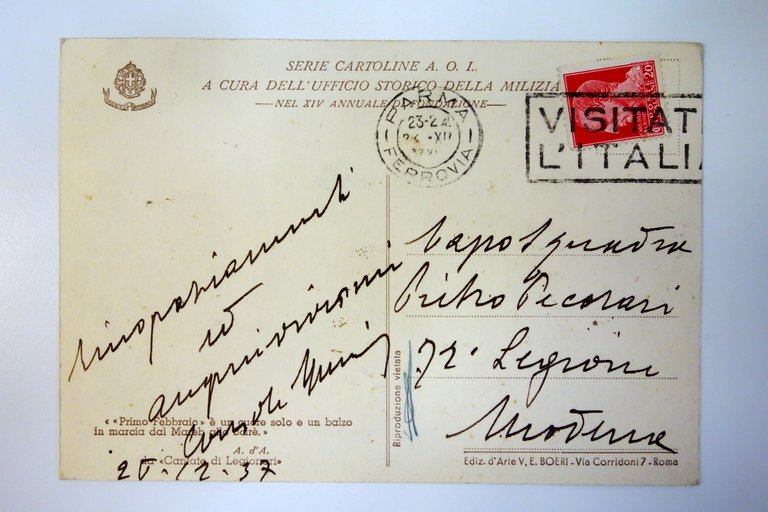 SERIE CARTOLINE A. O. I.
A CURA DELL'UFFICIO STORICO DELLA MILIZIA
NEL XIV ANNUALE DI FONDAZIONE
PARMA
23-24
FERROVIA
VISITATE
L'ITALIA
20
Ringraziamenti
ed
auguri vivissimi
« «Primo Febbraio» è un cuore solo e un balzo
in marcia dal Mareb allo Scirè. »
A. d'A.
da «Cantate di Legionari»
20-12-37
Capo Squadra
Pietro Pecorari
72ª Legione
Modena
Riproduzione vietata
Ediz. d'Arte V. E. BOERI - Via Corridoni 7 - Roma